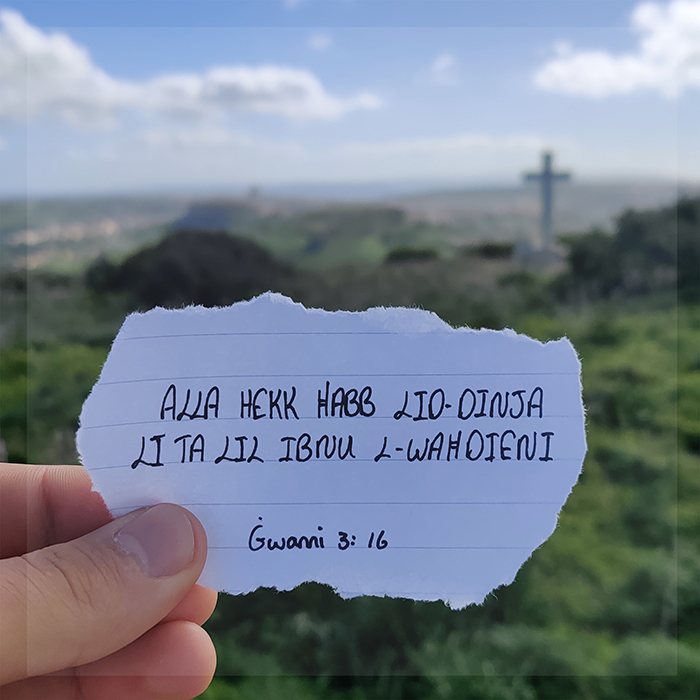 ALLA HEKK ĦABB LID-DINJA
LI TA LIL IBNU L-WAĦDIENI
Ġwanni 3: 16